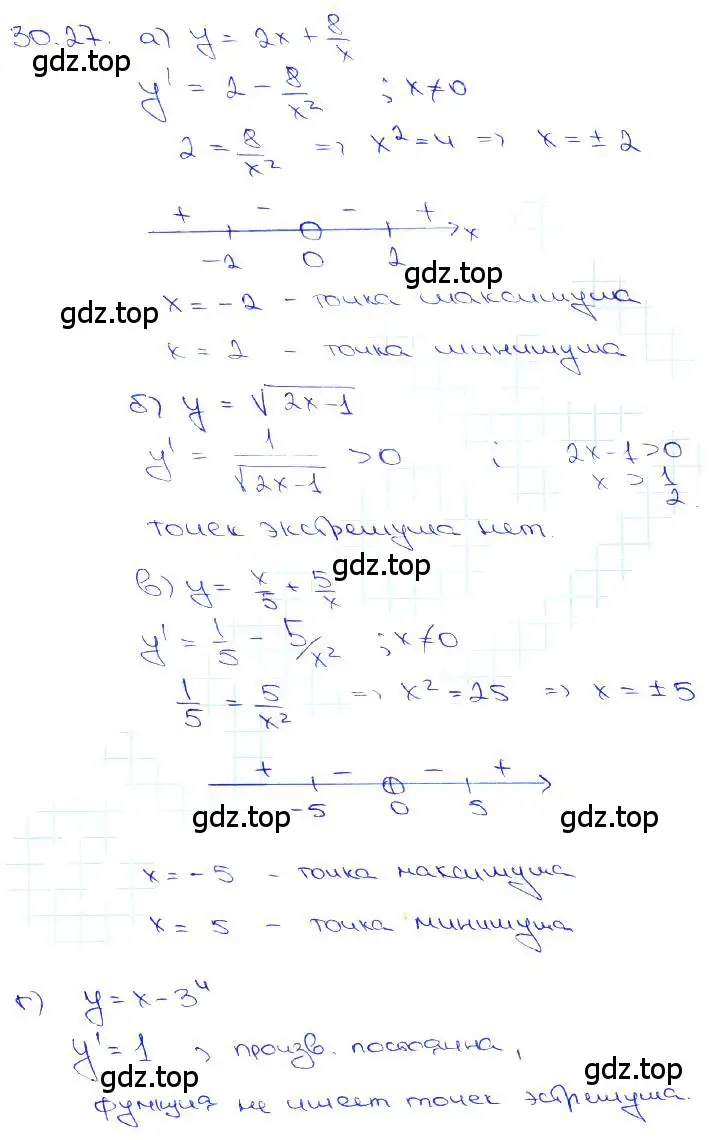 30.27. а) y = 2x + 8/x
gdz.top
y' = 2 - 8/x² ; x≠0
2 = 8/x² => x² = 4 => x = ± 2
+ - - + x
-2 0 2
gdz.top
x = -2 - точка максимума
gdz.top
x = 2 - точка минимума
б) y = √(2x-1)
y' = 1/√(2x-1) > 0 ; 2x-1>0
x > 1/2
точек экстремума нет.
gdz.top
в) y = x/5 + 5/x
y' = 1/5 - 5/x² ; x≠0
1/5 = 5/x² => x² = 25 => x = ±5
+ - - +
-5 0 5
gdz.top gdz.top
x = -5 - точка максимума
x = 5 - точка минимума
г) y = x - 3⁴
y' = 1 , произв. постоянна,
gdz.top gdz.top
функция не имеет точек эстремума.